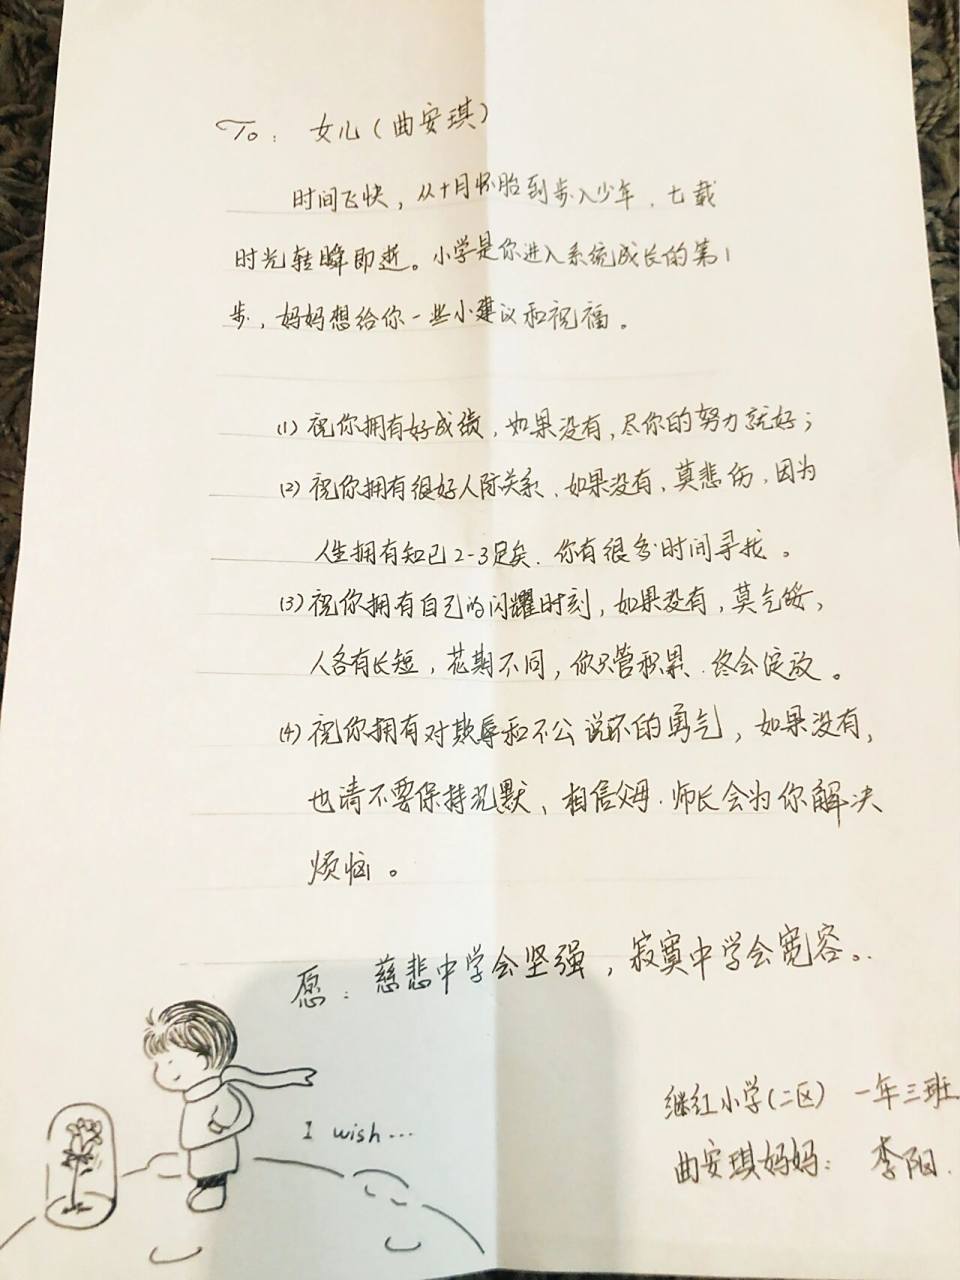 To: 女儿(曲安琪)
时间飞快，从十月怀胎到步入少年，七载
时光转瞬即逝。小学是你进入系统成长的第1
步，妈妈想给你一些小建议和祝福。
(1) 祝你拥有好成绩，如果没有，尽你的努力就好；
(2) 祝你拥有很好人际关系，如果没有，莫悲伤，因为
人生拥有知己2-3足矣，你有很多时间寻找。
(3) 祝你拥有自己的闪耀时刻，如果没有，莫气馁，
人各有长短，花期不同，你只管积累，终会绽放。
(4) 祝你拥有对欺辱和不公说不的勇气，如果没有，
也请不要保持沉默，相信父母、师长会为你解决
烦恼。
愿：慈悲中学会坚强，寂寞中学会宽容。
I wish...
继红小学(二区) 一年三班
曲安琪妈妈：李阳.